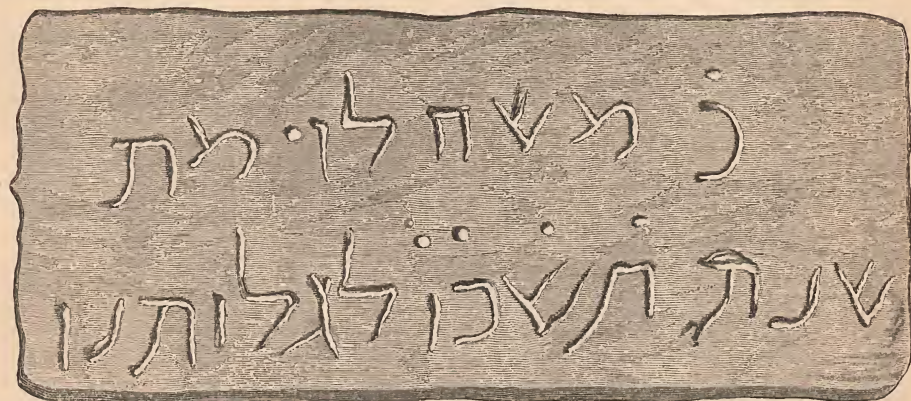 כ משח לוי מת
שנת תשכו לגלותנו